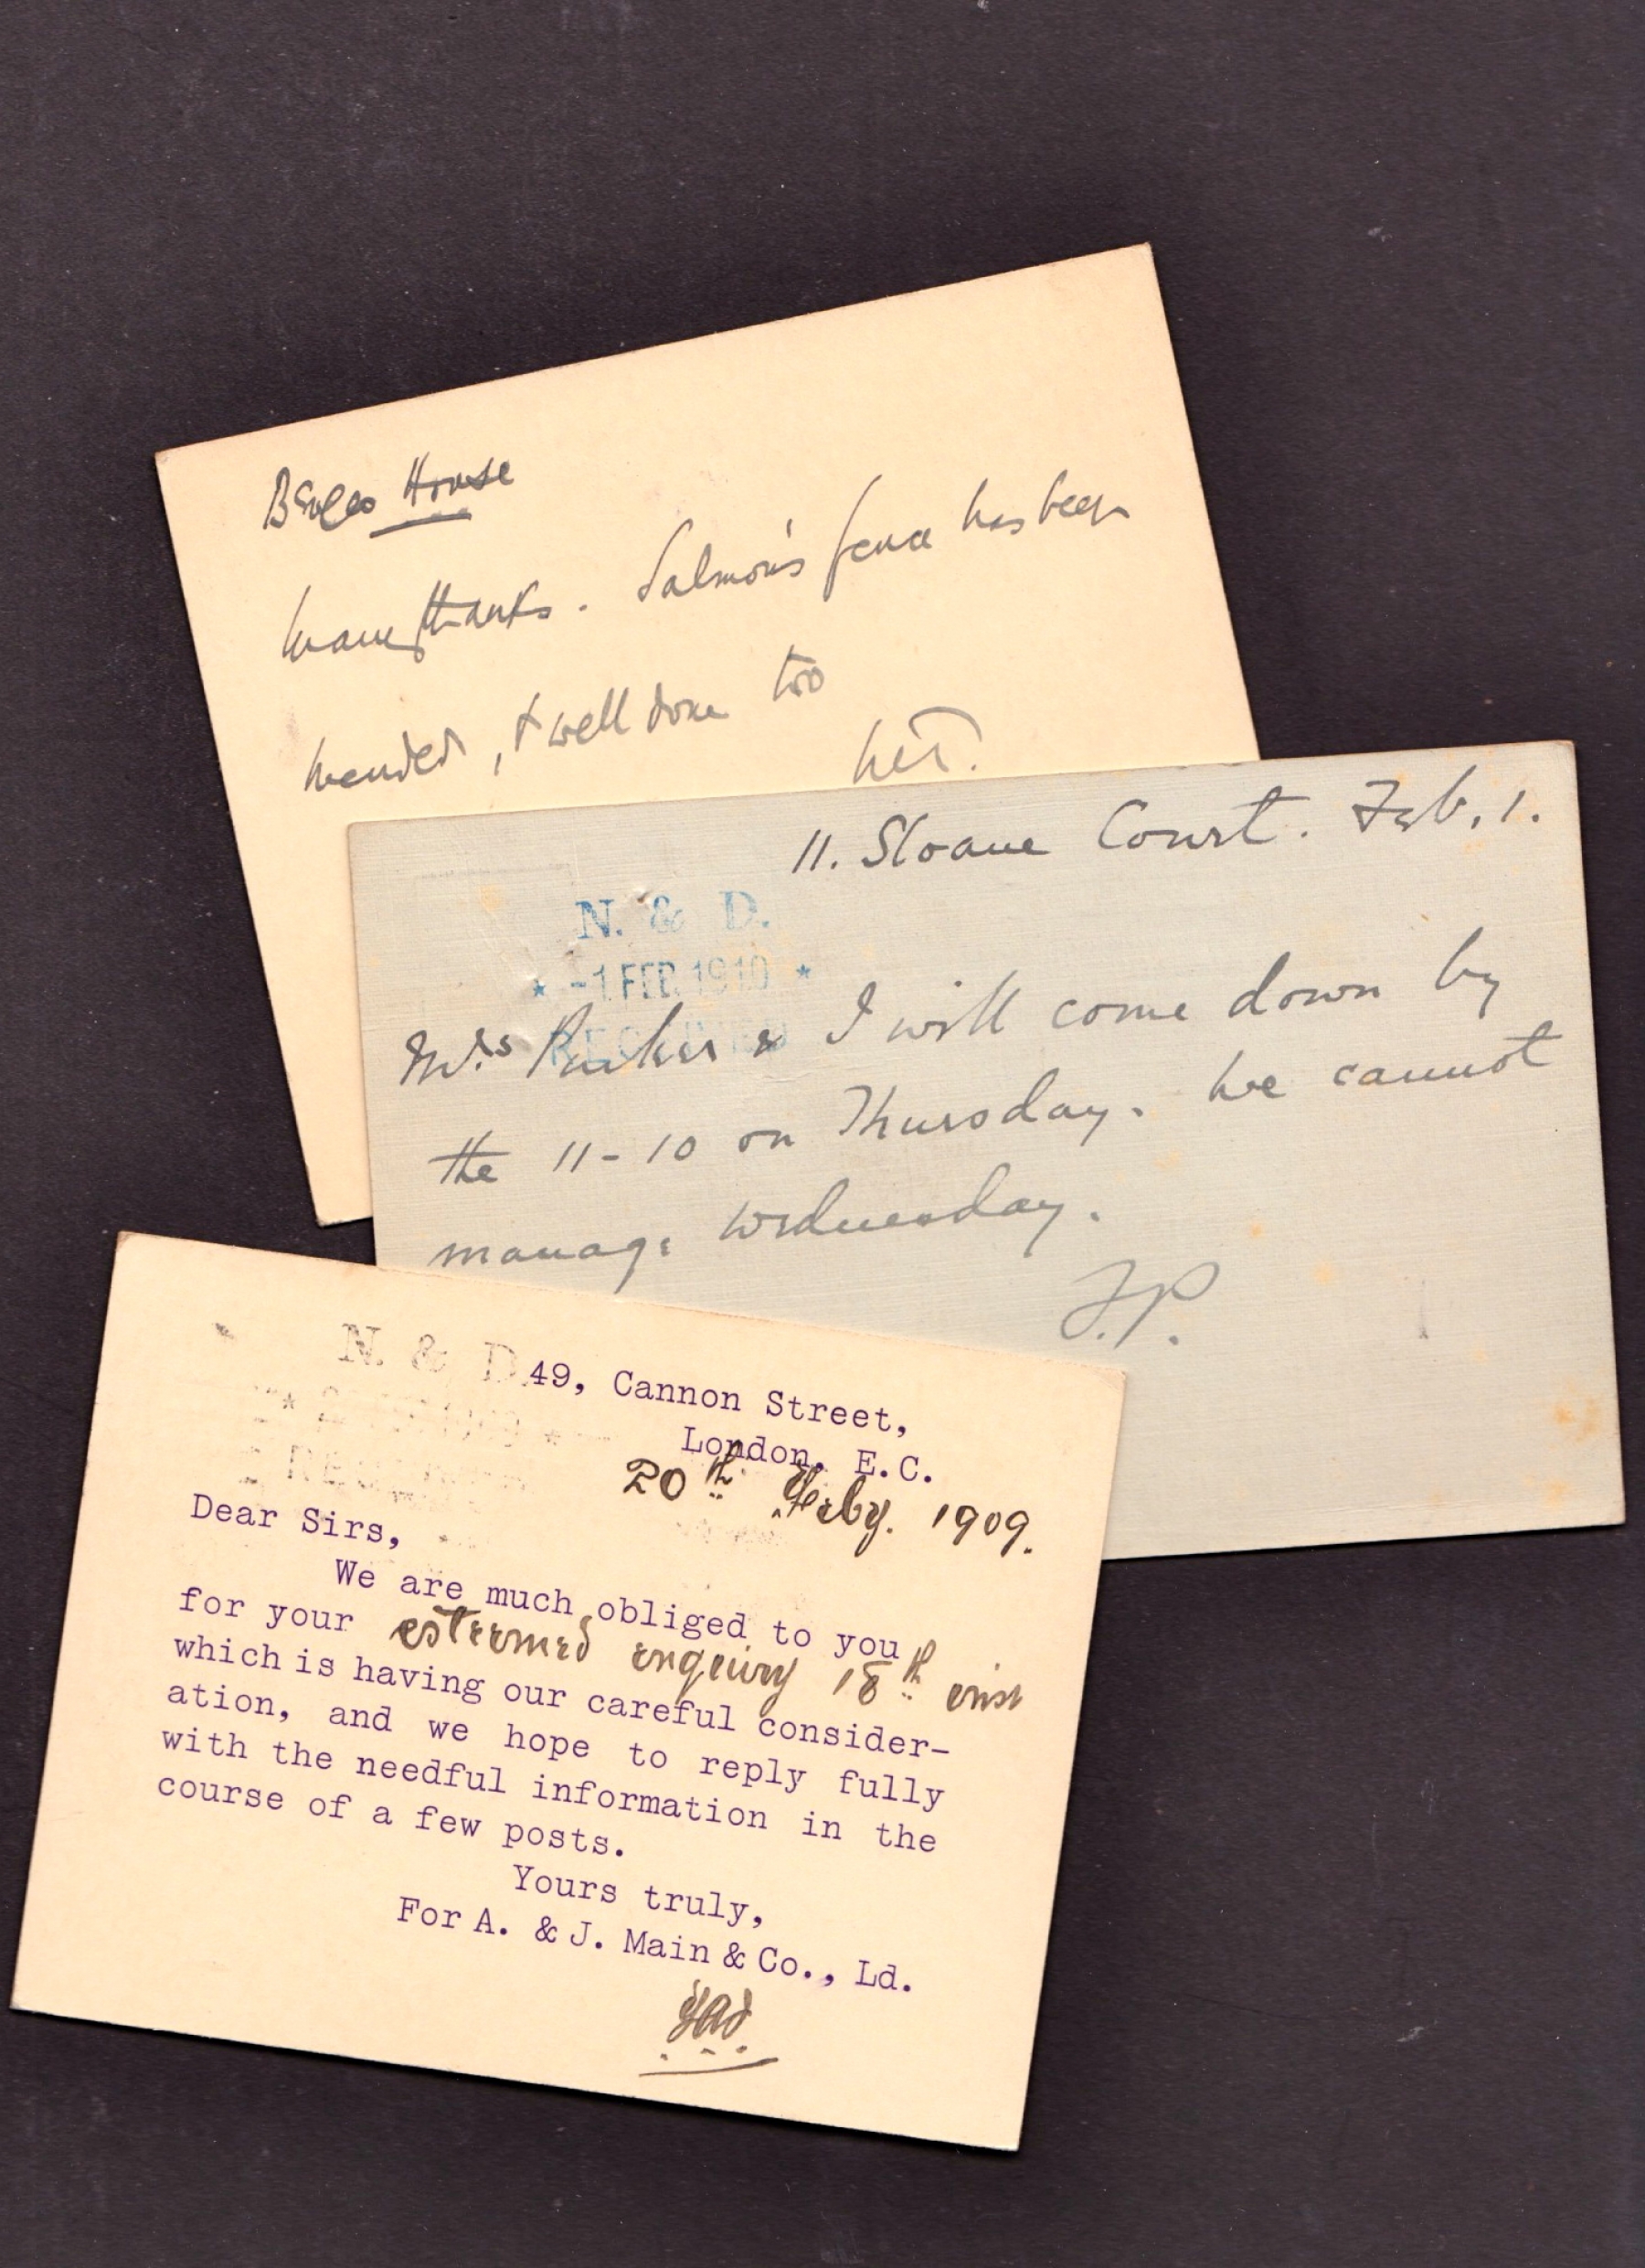 House
Many thanks. Salmon's fence has been
mended, & well done too
11. Sloane Court. Feb. 1.
N. & D.
* -1 FEB 1910 *
RECEIVED
Mrs Parker & I will come down by
the 11-10 on Thursday. We cannot
manage Wednesday.
F.P.
N. & D.
49, Cannon Street,
London, E.C.
20th Feby. 1909.
Dear Sirs,
We are much obliged to you
for your esteemed enquiry 18th inst
which is having our careful consider-
ation, and we hope to reply fully
with the needful information in the
course of a few posts.
Yours truly,
For A. & J. Main & Co., Ld.